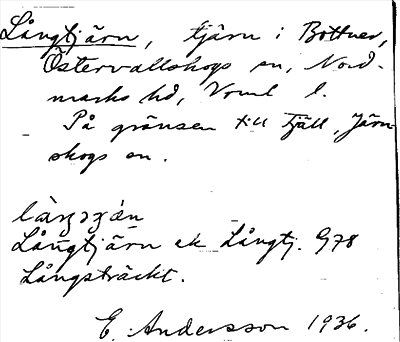 Långtjärn, tjärn i Bottnen,
Östervallskogs sn, Nord-
marks hd, Vrml l.
På gränsen till Fjäll, Järn-
skogs sn.
Långtjärn ek Långtj. G78
Långsträckt.
E. Andersson 1936.